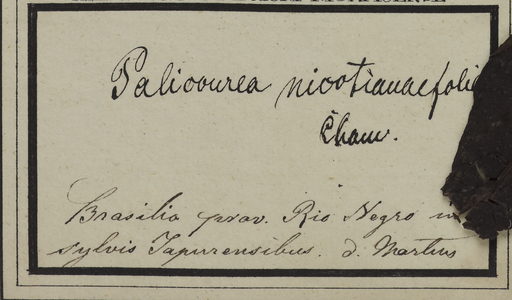 Palicourea nicotianaefolia
Cham.
Brasilia prov. Rio Negro in
sylvis Japurensibus. d. Martius